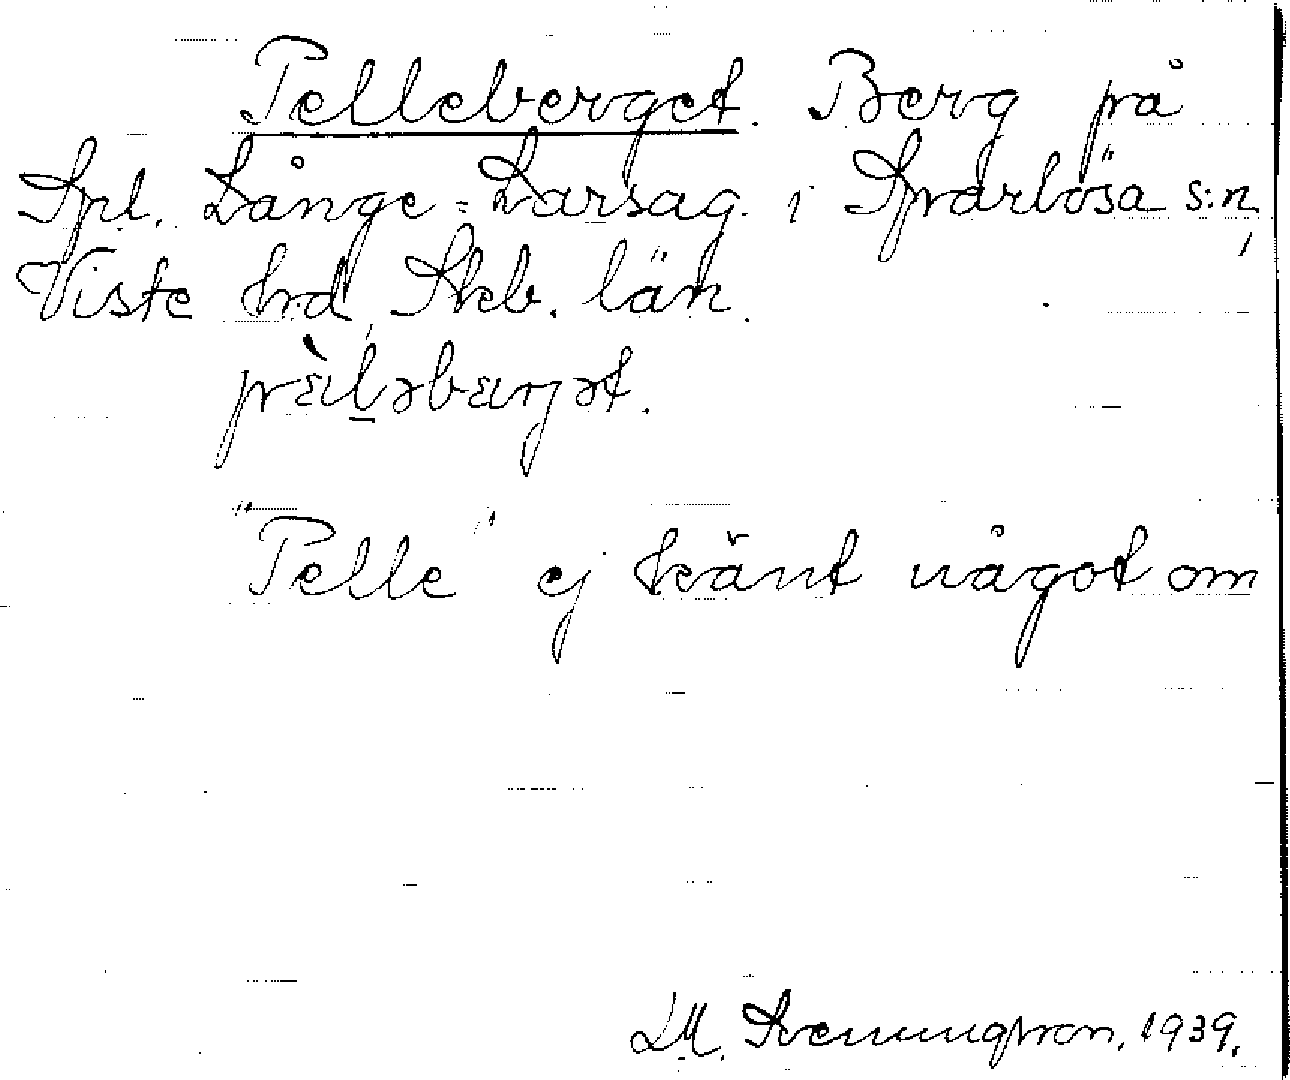 Pelleberget. Berg på
Spl. Långe-Larsag. i Sparlösa s:n,
Viste hd, Skb. län.
"Pelle" ej känt något om
L.M. Svenungsson. 1939.